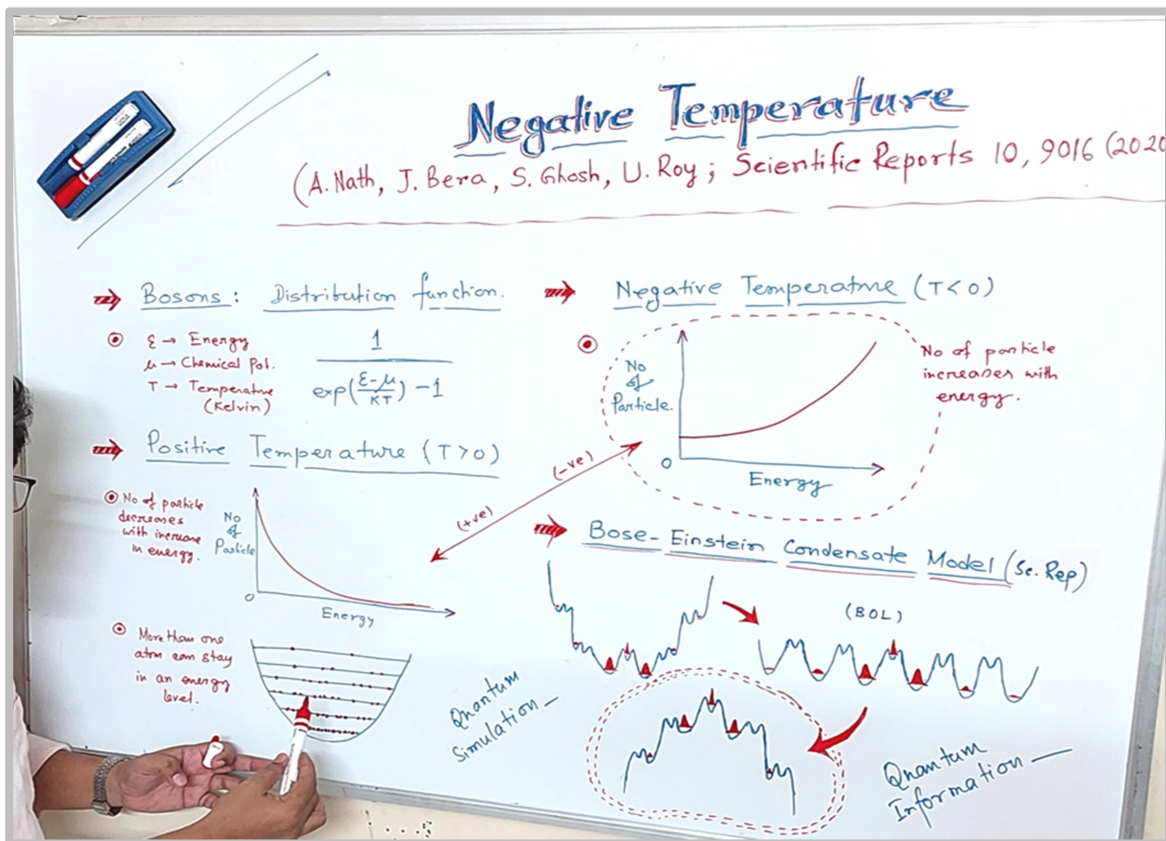 Negative Temperature
(A. Nath, J. Bera, S. Ghosh, U. Roy; Scientific Reports 10, 9016 (2020
Bosons: Distribution function.
ε → Energy
μ → Chemical Pot.
T → Temperature
(Kelvin)
1
exp(ε-μ/KT) - 1
Positive Temperature (T>0)
No of particle
decreases
with increase
in energy.
No
of
Particle
0
Energy
More than one
atom can stay
in an energy
level.
Negative Temperature (T<0)
No
of
Particle
0
Energy
No of particle
increases with
energy.
(-ve)
(+ve)
Bose-Einstein Condensate Model (Sc. Rep)
(BOL)
Quantum
Simulation —
Quantum
Information —